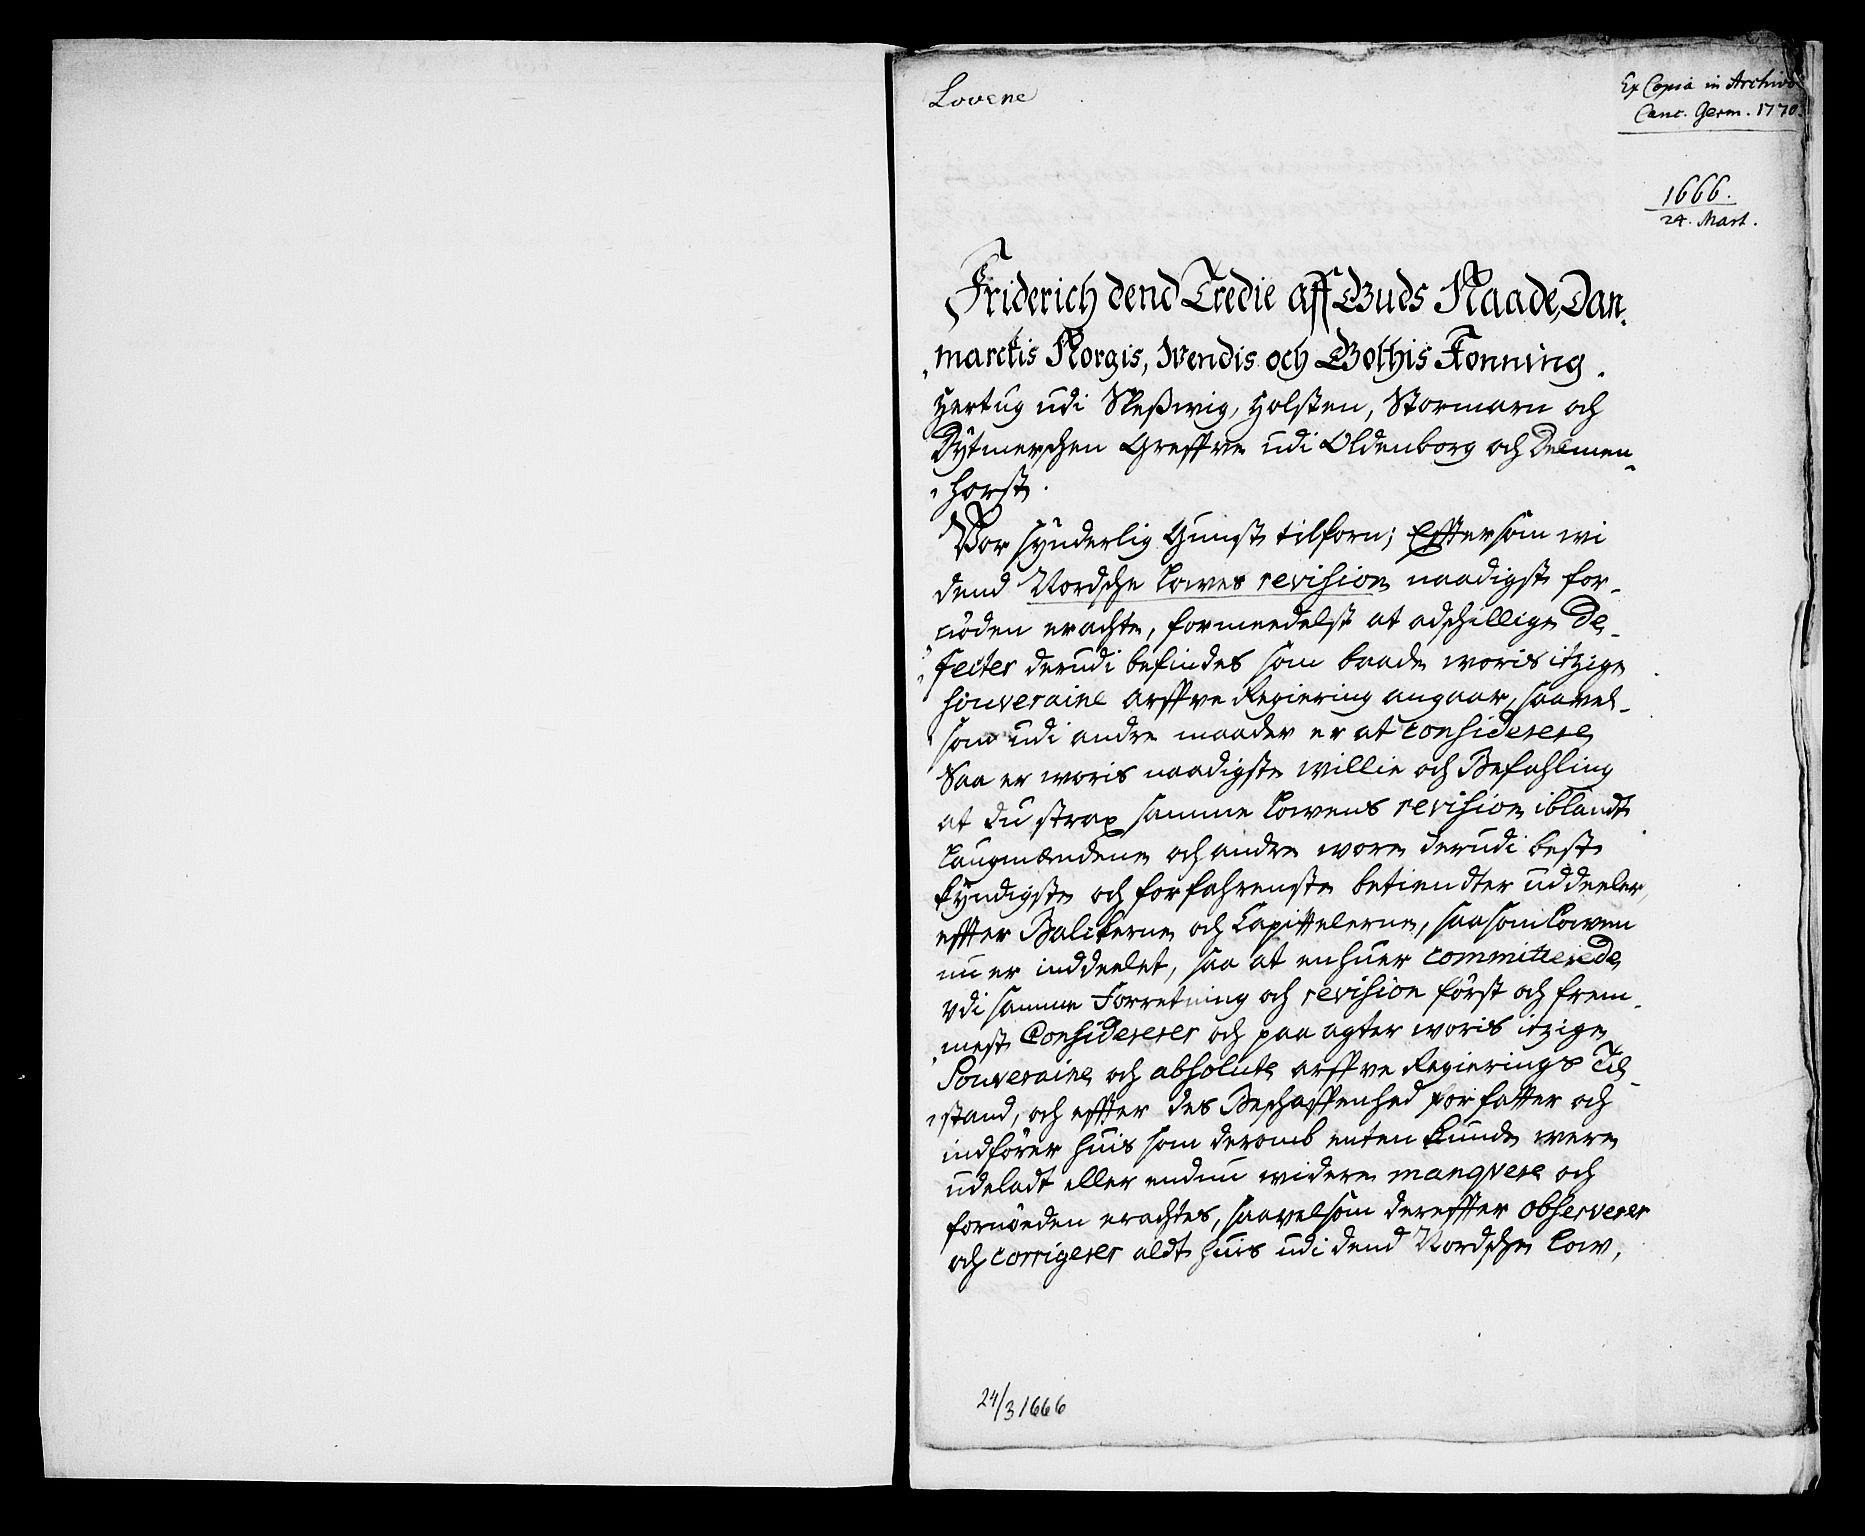 Lovene
Ex Copia in Archivo
Canc. Germ. 1770.
1666.
24. Mart.
Friderich dend Tredie aff Guds Naade, Dan-
marckis Norgis, Wendis och Gothis Konning.
Hertug udi Sleßwig, Holsten, Stormarn och
Dytmerschen Greffve udi Oldenborg och Delmen-
horst.
Vor synderlig Gunst tilforn; Efftersom wi
dend Nordsche Lowes revision naadigst for-
nöden erachte, formeedelst at adschillige De-
fecter derudi befindes som baade woris itzige
souveraine arffve Regiering angaar, saavel-
som udi andre maader er at considerere,
Saa er woris naadigste willie och Befahling
at du strax samme Lowens revision iblandt
Laugmændene och andre wore derudi best
kyndigste och forfahrenste betiendter uddeeler,
effter Balckerne och Capittelerne, saasom Lowen
nu er inddeelet, saa at enhuer committerede
udi samme Forretning och revision först och frem-
mest Considererer och paa agter woris itzige
Souveraine och absolute arffve Regierings Til-
stand, och effter des Beschaffenhed forfatter och
indförer huis som deromb enten kunde were
udeladt eller endnu widere manqvere och
fornöeden erachtes, saavelsom dereffter observerer
och corrigerer aldt huis udi dend Nordsche Low,
24/3 1666